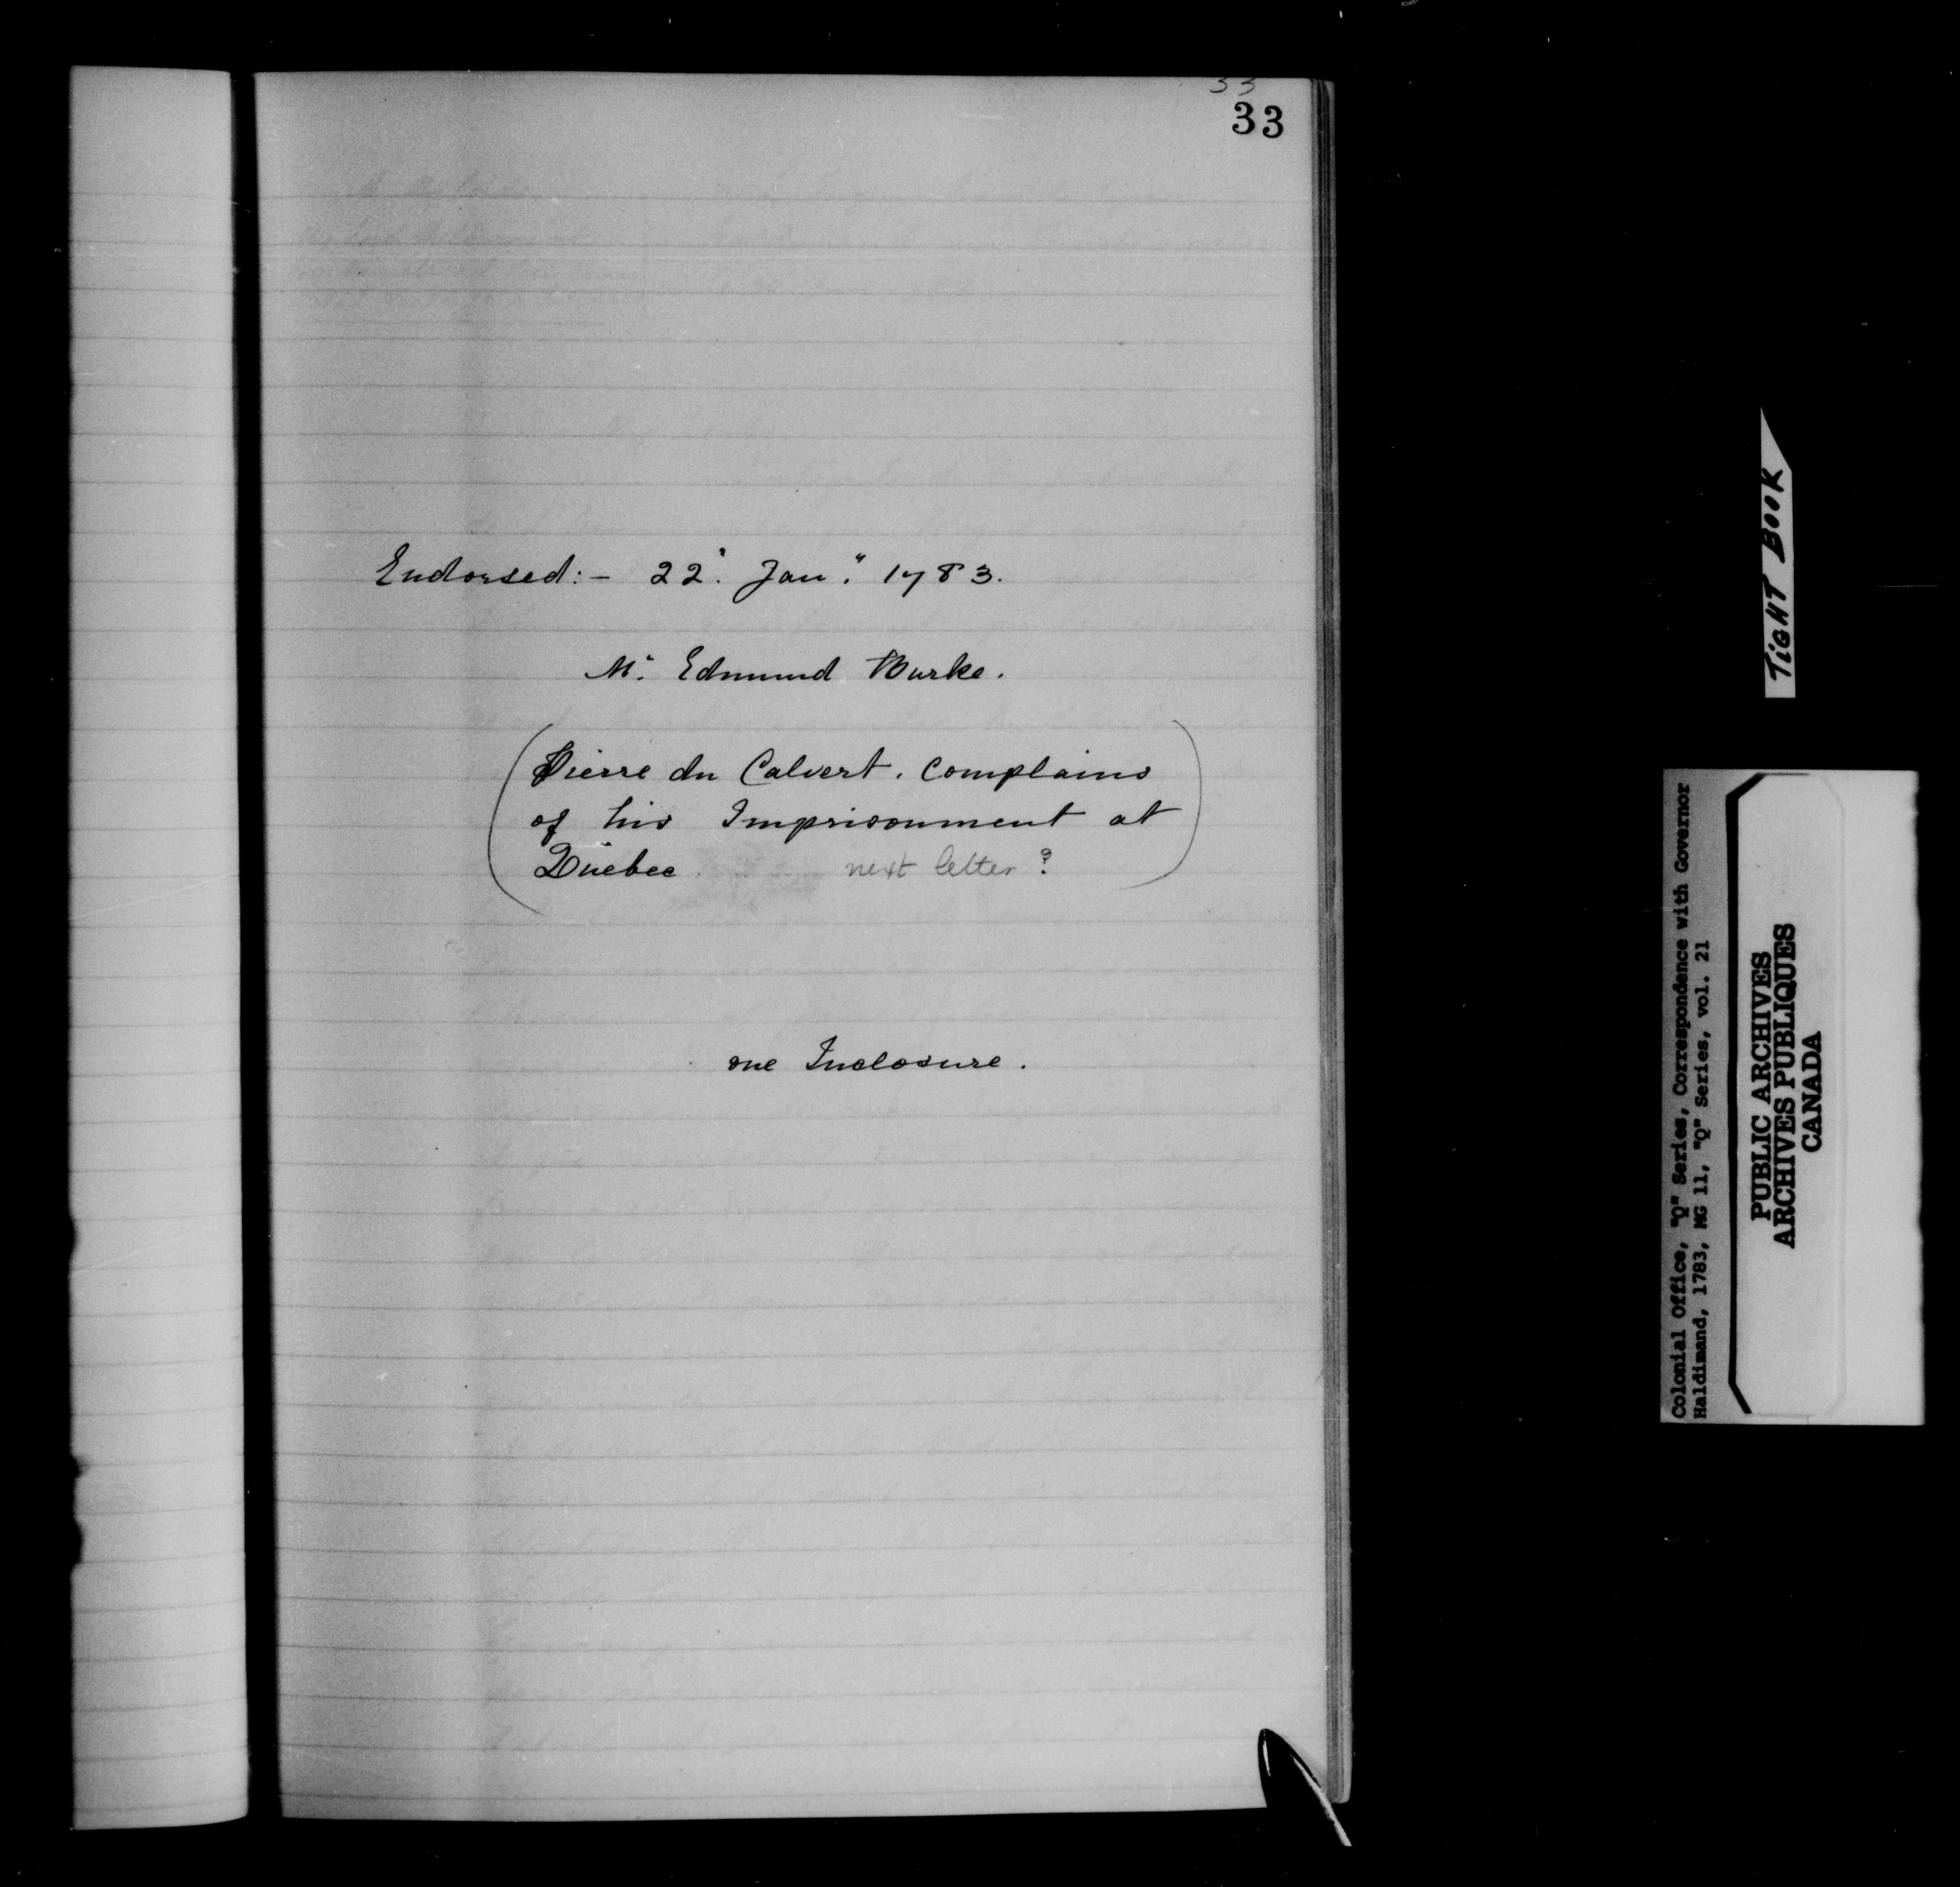 33
33
Endorsed:- 22. Jan.y 1783.
Mr. Edmund Burke.
(Pierre du Calvert. Complains
of his Imprisonment at
Quebec next letter?)
one Inclosure.
TIGHT BOOK
Colonial Office, "Q" Series, Correspondence with Governor
Haldimand, 1783, MG 11, "Q" Series, vol. 21
PUBLIC ARCHIVES
ARCHIVES PUBLIQUES
CANADA